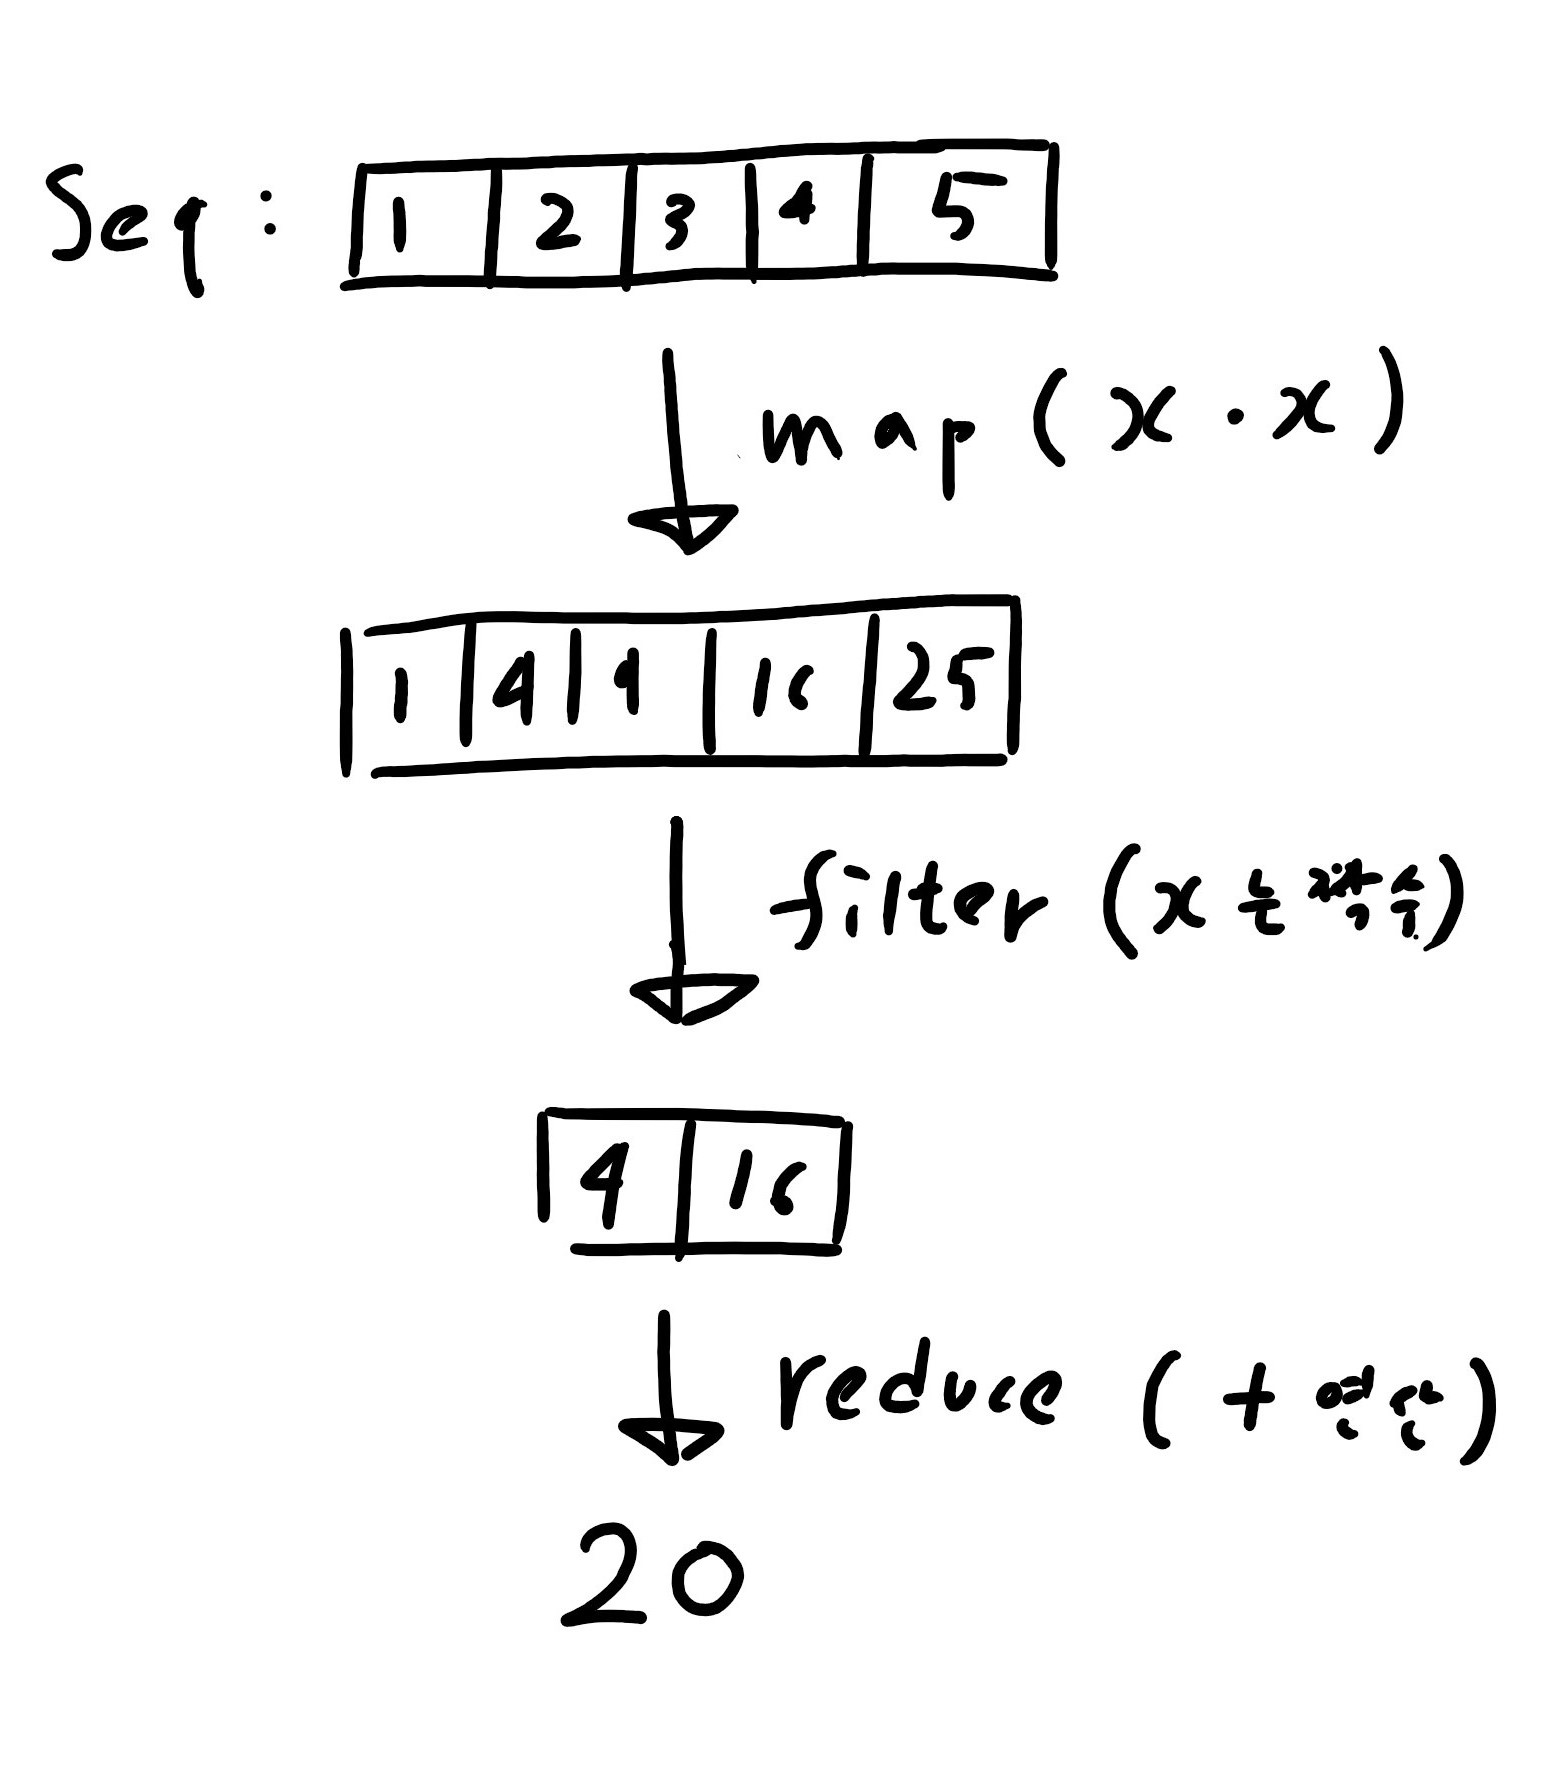 Seq : 1 2 3 4 5
map ( x · x )
1 4 9 16 25
filter ( x 는 짝수 )
4 16
reduce ( + 연산 )
20